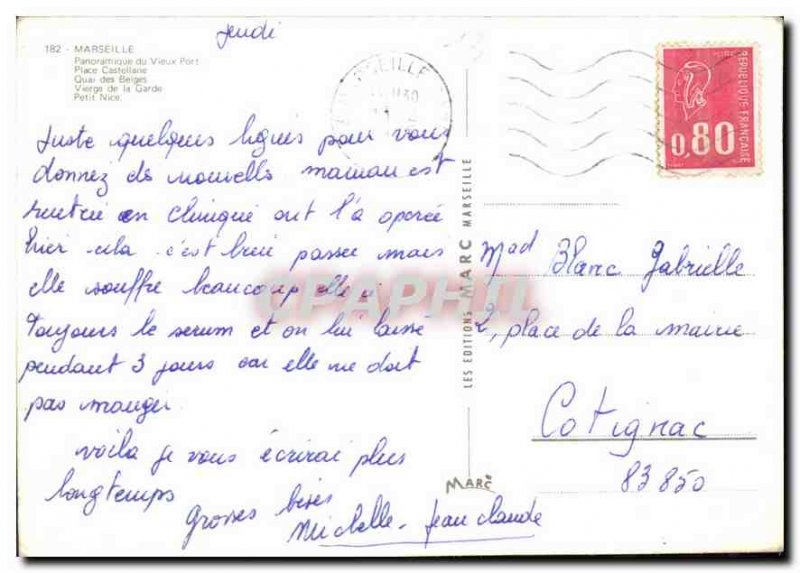 jeudi
182 - MARSEILLE
Panoramique du Vieux Port
Place Castellane
Quai des Belges
Vierge de la Garde
Petit Nice
Juste quelques lignes pour vous
donnez des nouvelles maman est
rentrée en clinique ont l'a operée
hier cela c'est bien passée mais
elle souffre beaucoup elle a
toujours le serum et on lui laisse
pendant 3 jours car elle ne doit
pas manger.
voila je vous écrirai plus
longtemps
grosses bises
Michelle - Jean claude
LES EDITIONS MARC MARSEILLE
MARC
REPUBLIQUE FRANÇAISE
0,80
Mad Blanc Gabrielle
2, place de la mairie
Cotignac
83850
CPAPHIL